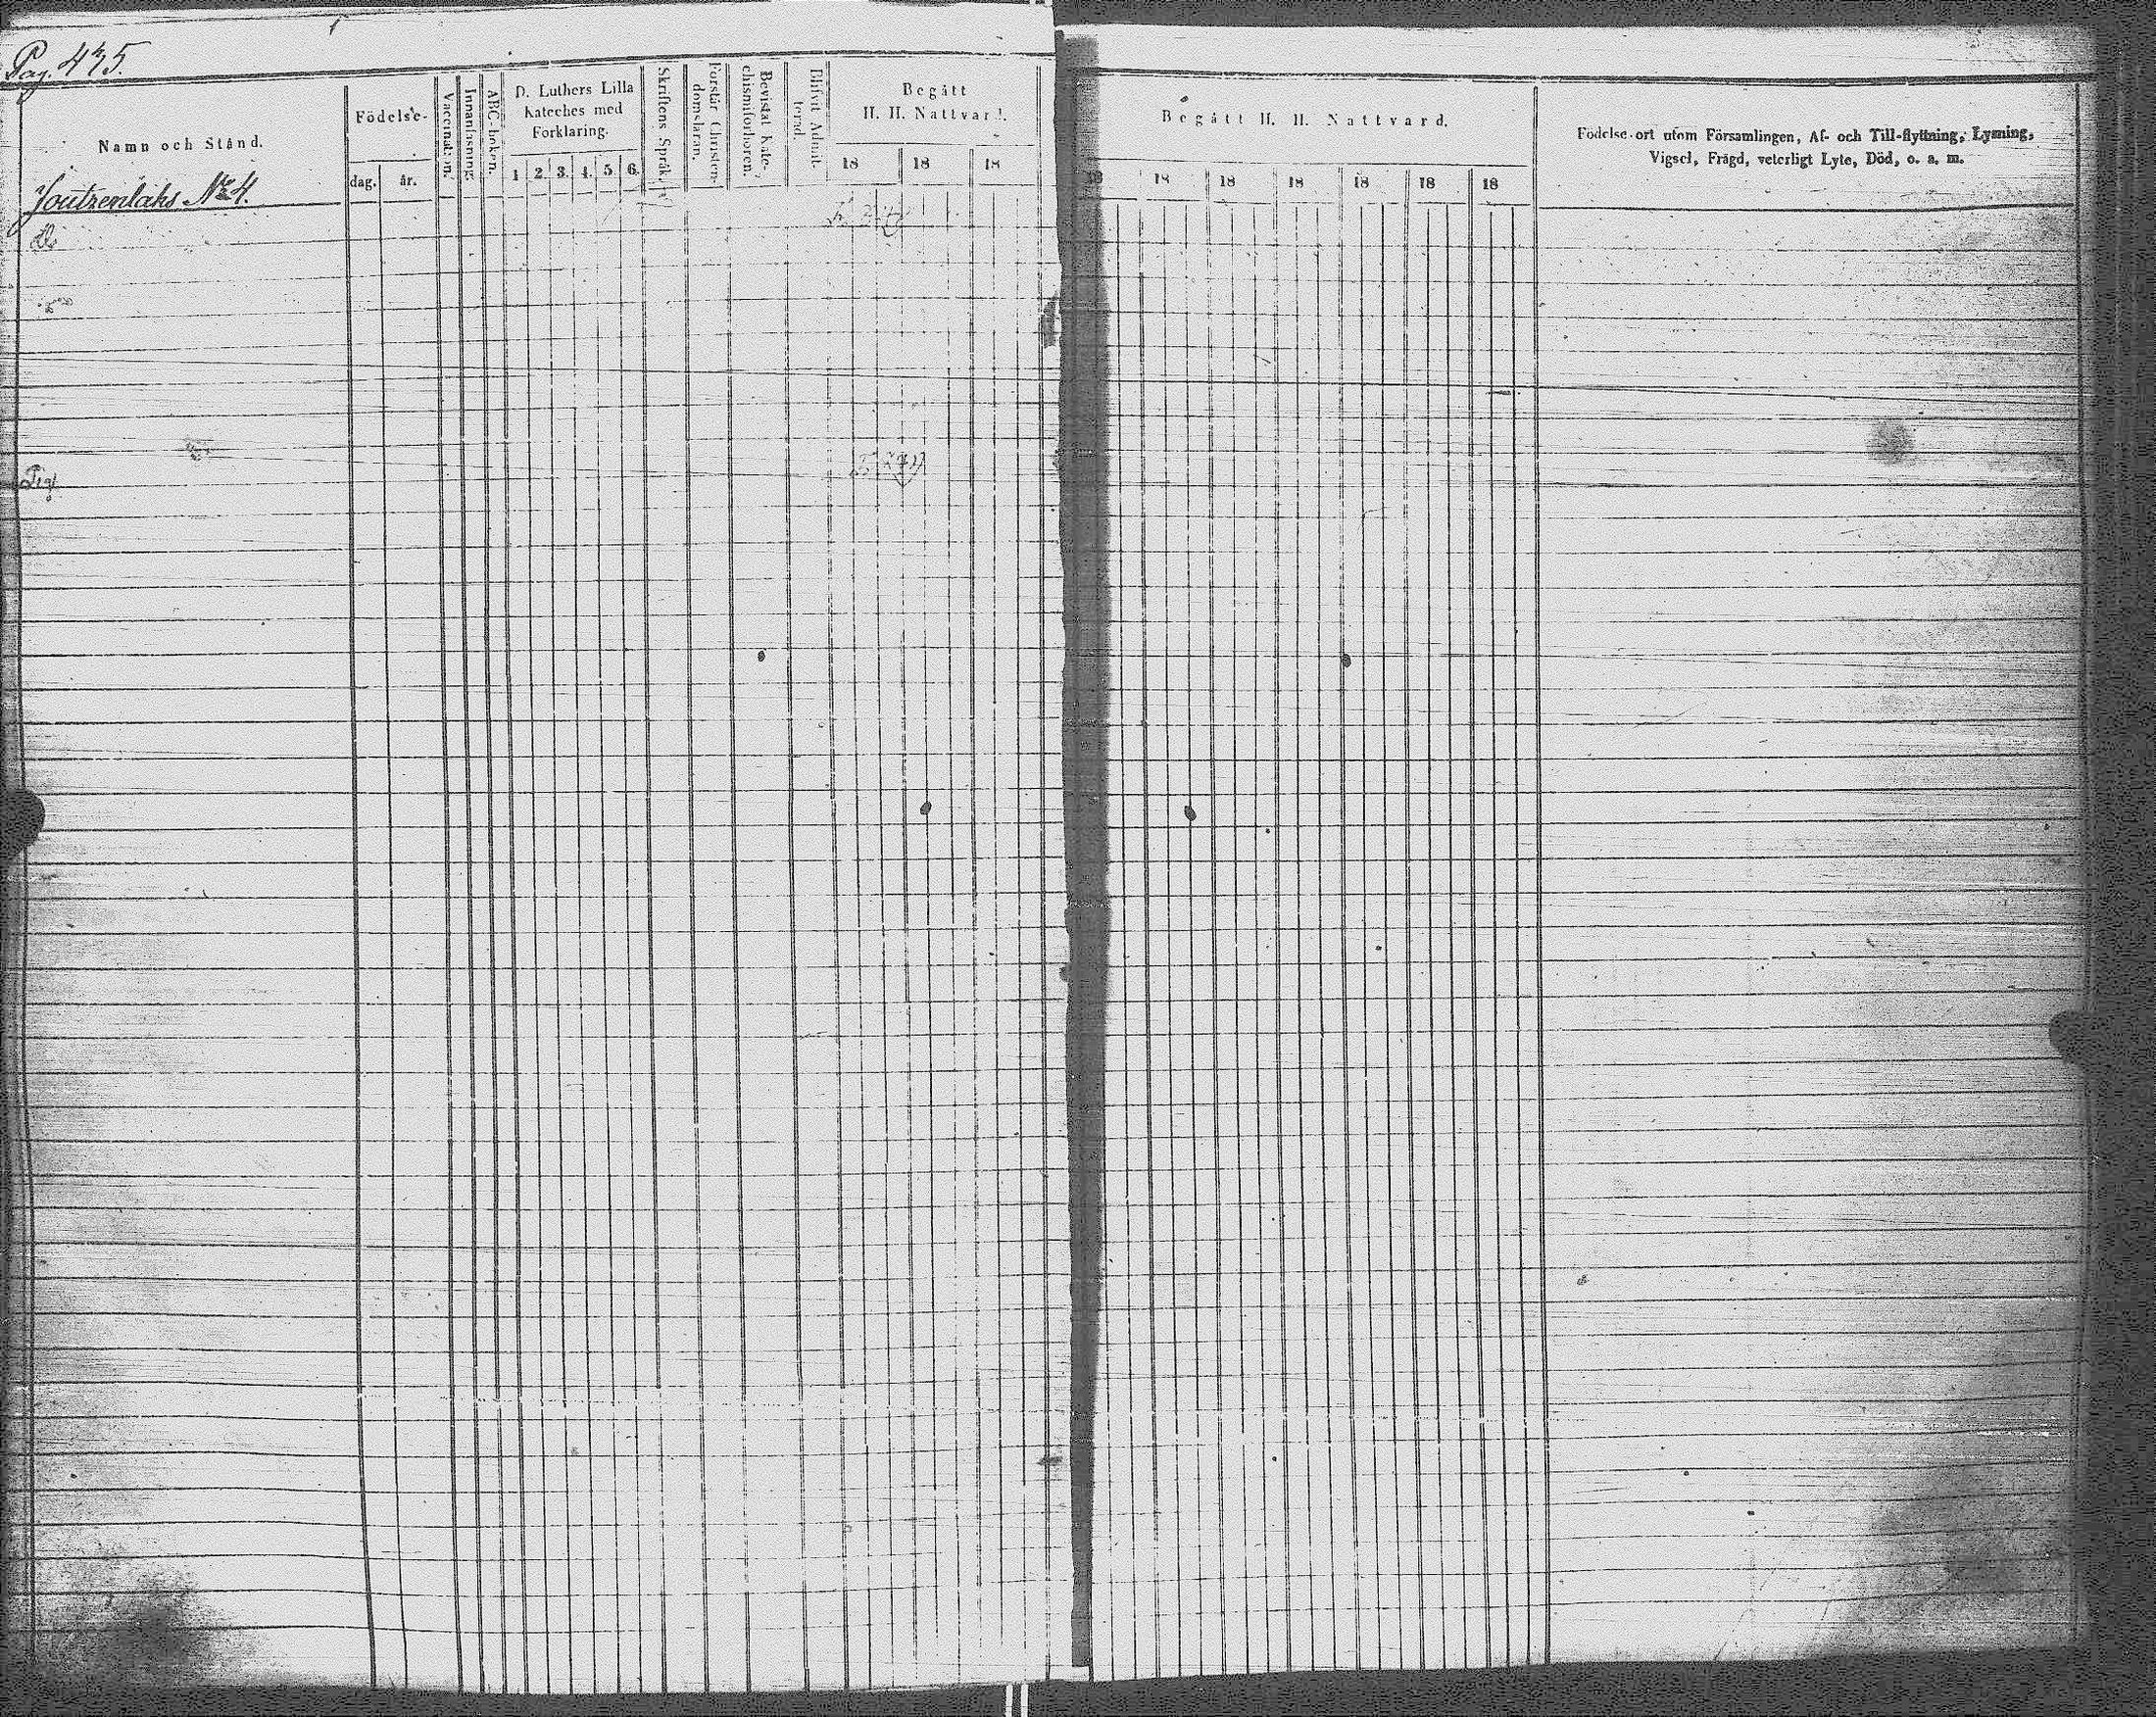 Pag. 435.
Namn och Stånd.
Joutzenlahs № 4.
Födelse-
dag. år.
Vaccination.
Innanläsning.
ABC-boken.
D. Luthers Lilla
Kateches med
Forklaring.
1 2 3. 4. 5 6.
Skriftens Språk.
Forstår Christen-
domsläran.
Bevistat Kate-
chismiforhoren.
Blifvit Admit-
terad.
Begått
H. H. Nattvard.
18 18 18
Begått H. H. Nattvard.
18 18 18 18 18 18 18
Fodelse-ort utom Församlingen, Af- och Till-flyttning, Lysning,
Vigsel, Frägd, veterligt Lyte, Död, o. s. m.